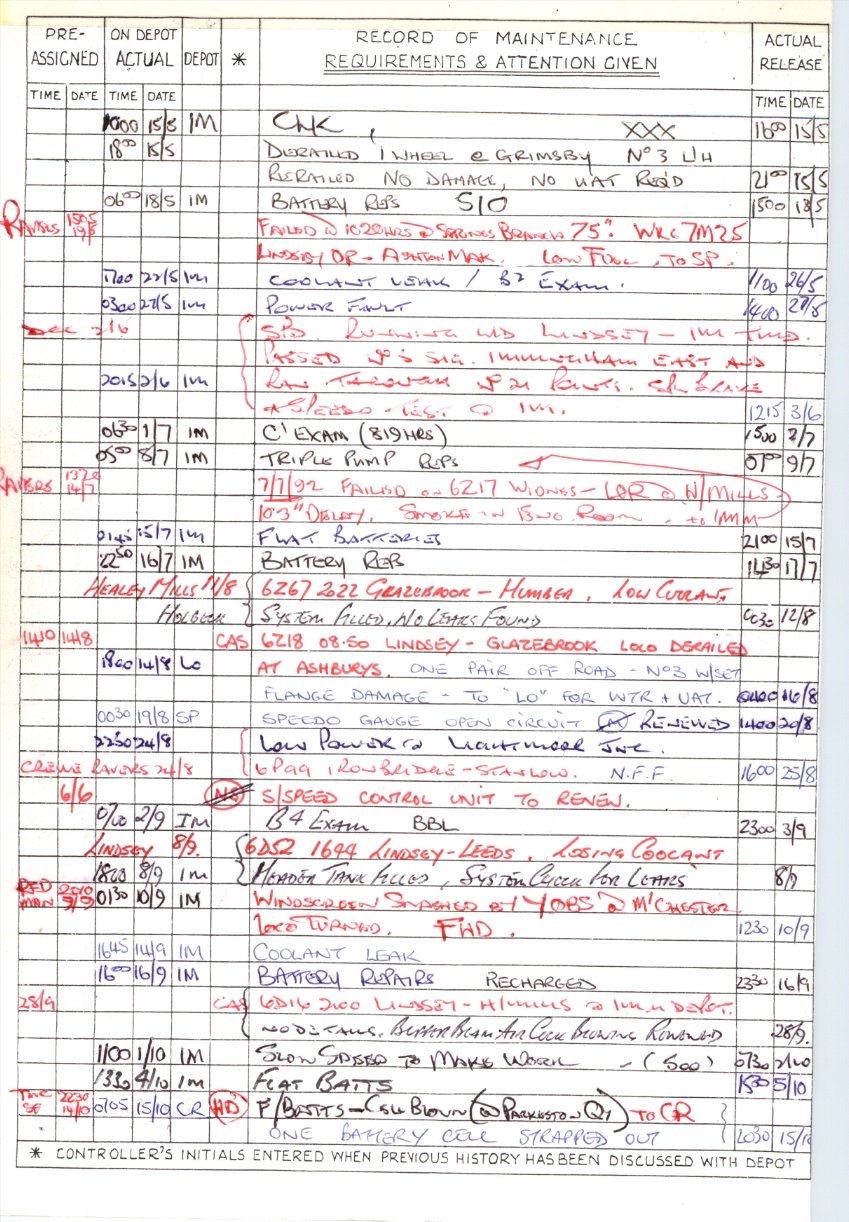 PRE-ASSIGNED ON DEPOT ACTUAL DEPOT * RECORD OF MAINTENANCE REQUIREMENTS & ATTENTION GIVEN ACTUAL RELEASE
TIME DATE TIME DATE TIME DATE
1000 15/5 IM XXX 1600 15/5
1800 15/5 DERAILED 1 WHEEL @ GRIMSBY Nº 3 L/H
RERAILED NO DAMAGE, NO UAT REQ'D 2100 15/5
0600 18/5 IM BATTERY REPS S/O 1500 18/5
1505 19/5 FAILED @ 1020HRS @ SPRINGS BRANCH 75". WRC 7M25
LINDSEY OR - ASHTON MAK. LOW FUEL, TO SP.
1700 22/5 IM COOLANT LEAK / B2 EXAM. 1100 26/5
0300 27/5 IM POWER FAULT 1400 27/5
2/6 RUNNING L/D LINDSEY - IM TMD.
PASSED Nº 3 SIG. IMMINGHAM EAST AND
2015 2/6 IM RAN THROUGH Nº 21 POINTS. BRAKE
+ SPEEDO - TEST @ IM. 1215 3/6
0630 1/7 IM C' EXAM (819 HRS) 1500 2/7
0500 8/7 IM TRIPLE PUMP REPS 9/7
14/7 7/7/92 FAILED ON 6Z17 WIDNES - @ H/MILLS
DELAY. SMOKE IN ROOM.
2145 15/7 IM FLAT BATTERIES 2100 15/7
2250 16/7 IM BATTERY REPS 1430 17/7
HEALEY MILLS 11/8 6Z67 2022 GLAZEBROOK - HUMBER, LOW COOLANT
HOLBECK SYSTEM FILLED, NO LEAKS FOUND 0030 12/8
1410 14/8 CAS 6Z18 08.50 LINDSEY - GLAZEBROOK LOCO DERAILED
1800 14/8 LO AT ASHBURYS. ONE PAIR OFF ROAD - Nº3 W/SET
FLANGE DAMAGE - TO "LO" FOR WTR + UAT. 0400 16/8
0030 19/8 SP SPEEDO GAUGE OPEN CIRCUIT RENEWED 1400 20/8
2230 24/8 LOW POWER @ LIGHTMOOR JNC.
CREWE RAVERS 24/8 6P99 IRONBRIDGE - STANLOW. N.F.F. 1600 25/8
6/6 S/SPEED CONTROL UNIT TO RENEW.
0700 2/9 IM B4 EXAM BBL 2300 3/9
LINDSEY 8/9. 6D52 1644 LINDSEY-LEEDS, LOSING COOLANT
1800 8/9 IM HEADER TANK FILLED, SYSTEM CHECK FOR LEAKS 8/9
RED MAN 2010 9/9 0130 10/9 IM WINDSCREEN SMASHED BY YOBS @ M'CHESTER
LOCO TURNED. FWD. 1230 10/9
1645 14/9 IM COOLANT LEAK
1600 16/9 IM BATTERY REPAIRS RECHARGED 2330 16/9
28/9 CAS 6D16 2100 LINDSEY - H/MILLS @ IMM DEPOT.
NO DETAILS. BUFFER BEAM AIR COCK BLOWING RENEWED 28/9.
1100 1/10 IM SLOW SPEED TO MAKE WORK - (500) 0730 2/10
1330 4/10 IM FLAT BATTS 1530 5/10
2230 14/10 0705 15/10 CR HD F/BATTS - CELL BLOWN (@ PARKESTON QY) TO CR
ONE BATTERY CELL STRAPPED OUT 2030 15/10
* CONTROLLER'S INITIALS ENTERED WHEN PREVIOUS HISTORY HAS BEEN DISCUSSED WITH DEPOT